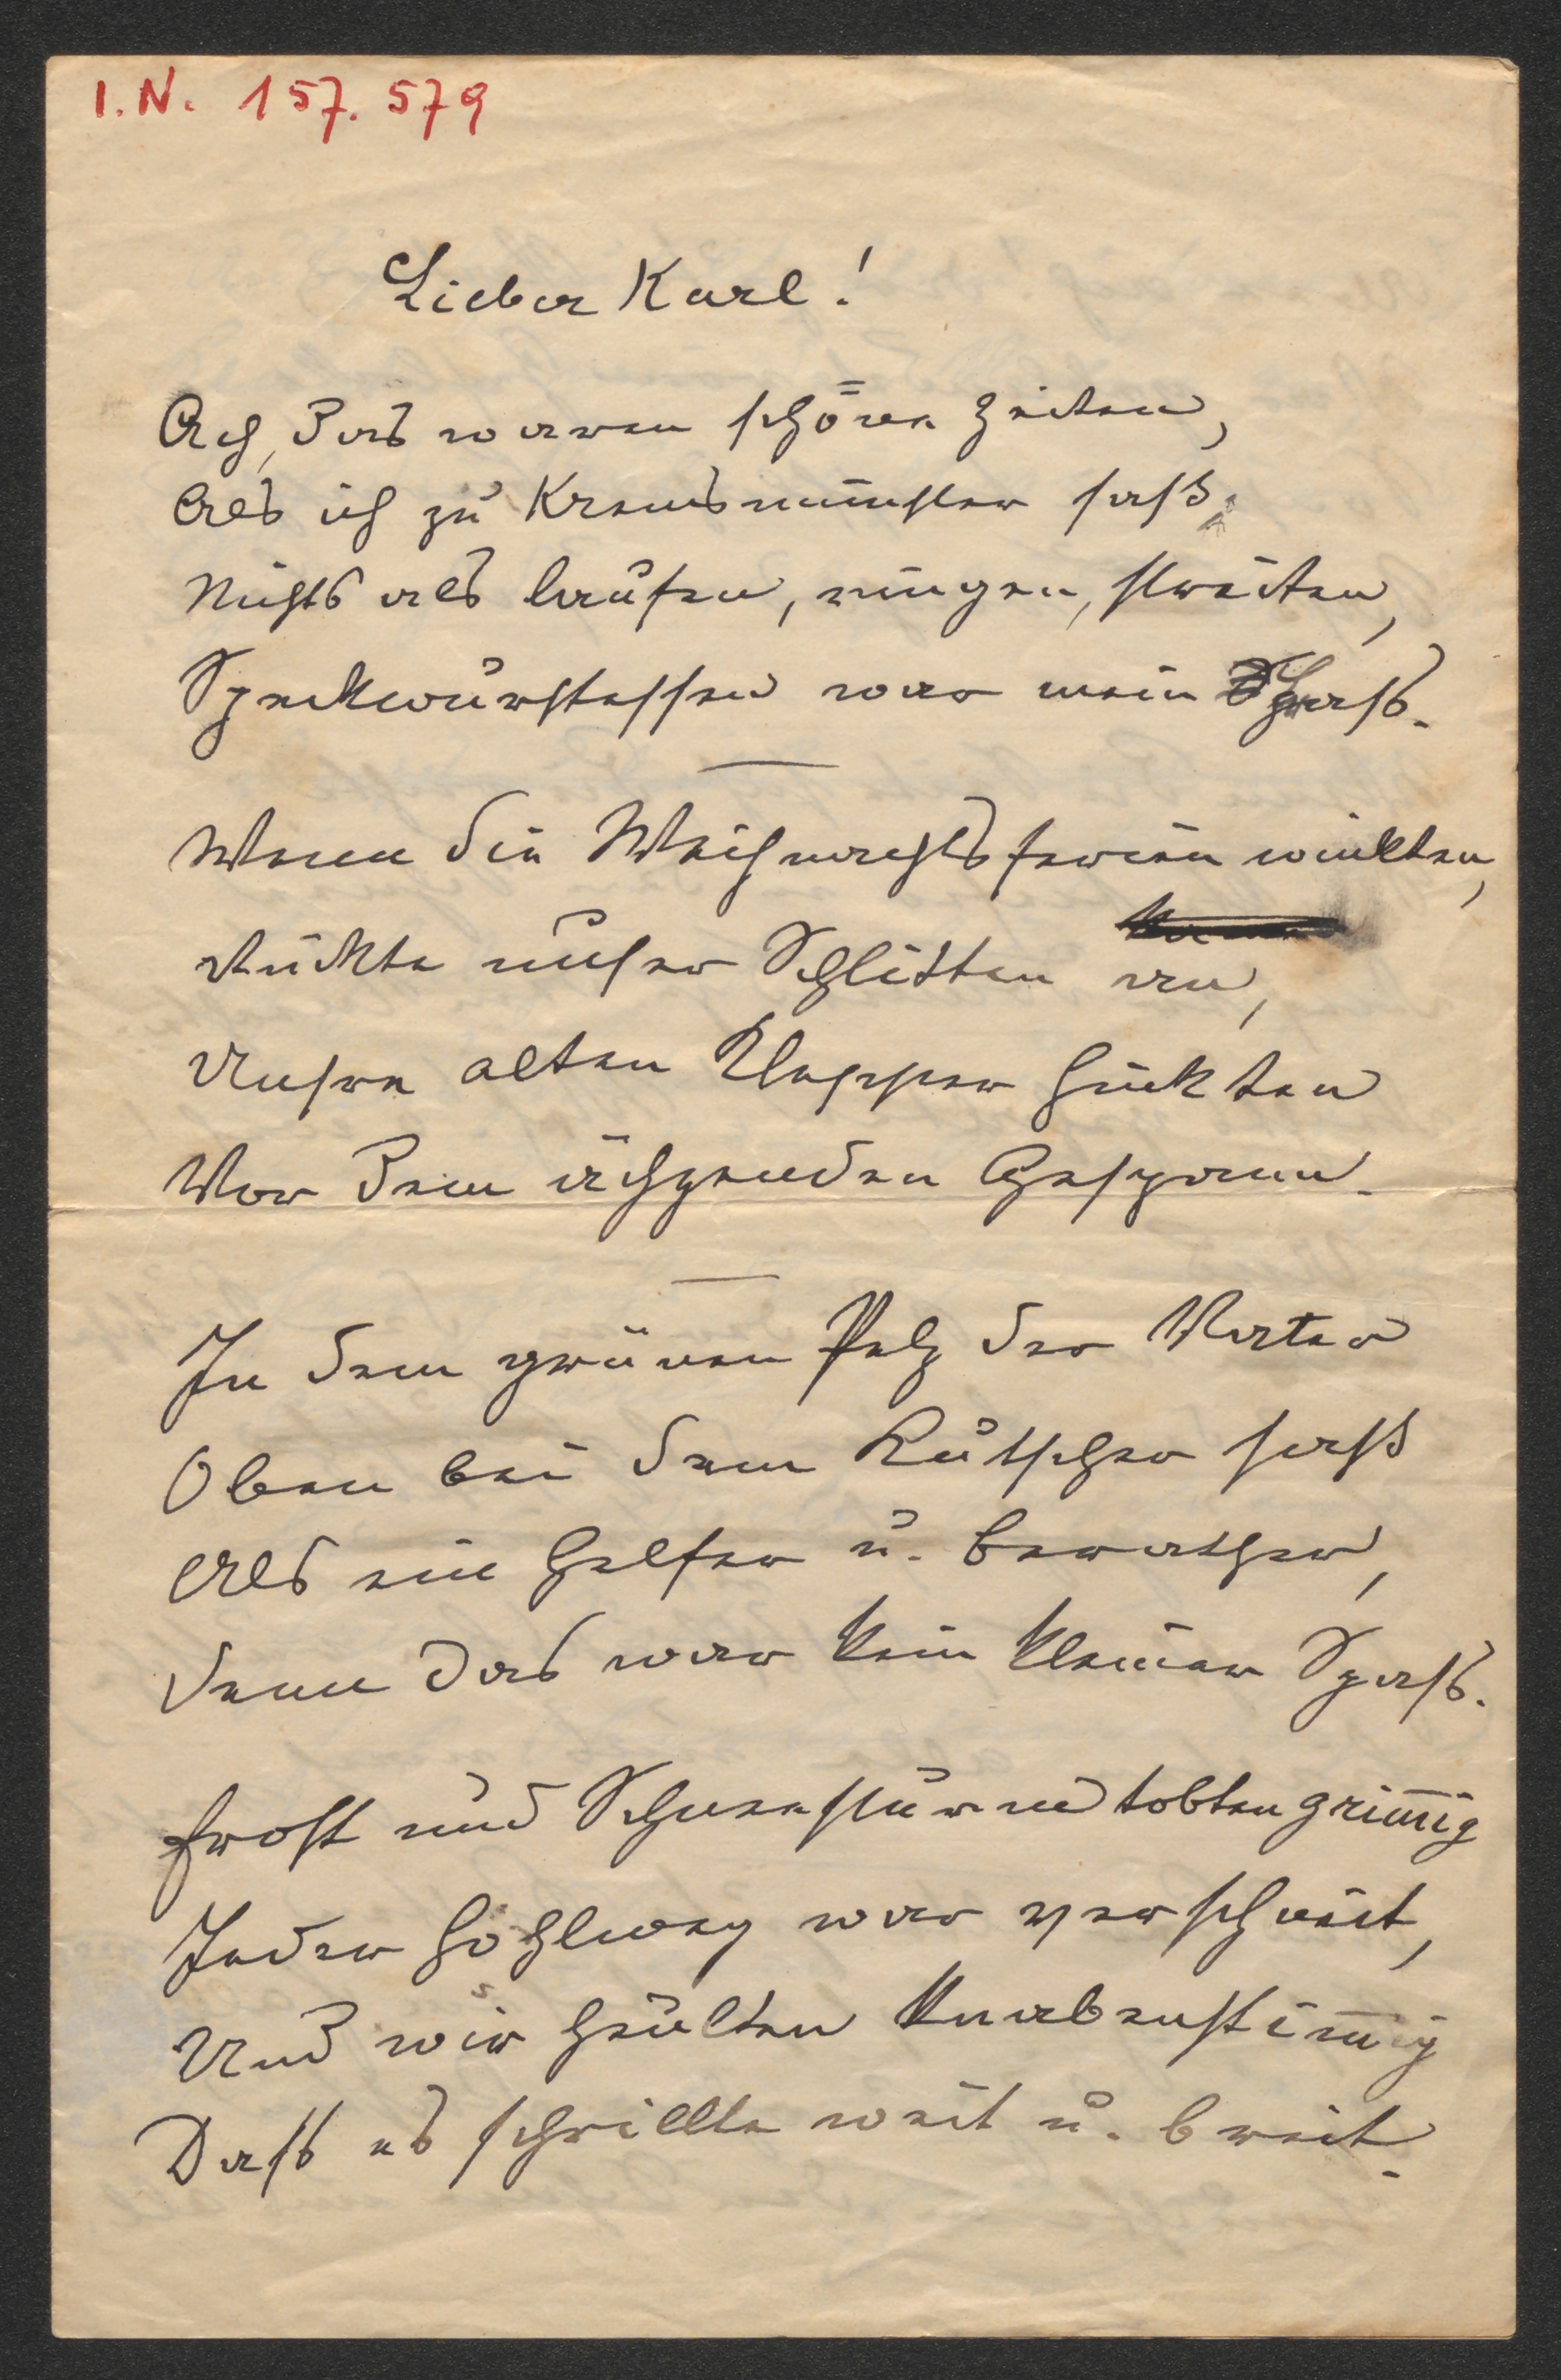 I.N. 157.579
Lieber Karl!
Ach, das waren schöne Zeiten,
Als ich zu Kremsmünster saß,
Nichts als laufen, ringen, streiten,
Speckwurstessen war mein Spaß.
Wenn die Weihnachtsferien winkten,
Rückte unser Schlitten an,
Unsre alten Klepper hinkten
Vor dem ächzenden Gespann.
In dem grünen Pelz der Vater
Oben bei dem Kutscher saß
Als ein Helfer u. Berather,
Denn das war kein kleiner Spaß.
Frost und Schneesturm tobten grim̅ig
Jeder Hohlweg war verschneit,
Und wir heulten knabenstim̅ig
Daß es schrillte weit u. breit.